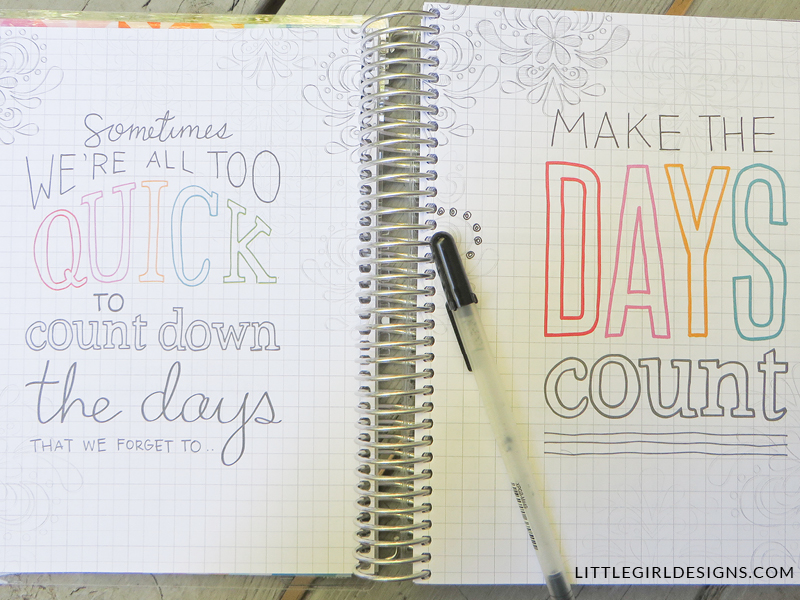 Sometimes
WE'RE ALL TOO
QUICK
TO
count down
the days
THAT WE FORGET TO..
MAKE THE
DAYS
count
LITTLEGIRLDESIGNS.COM